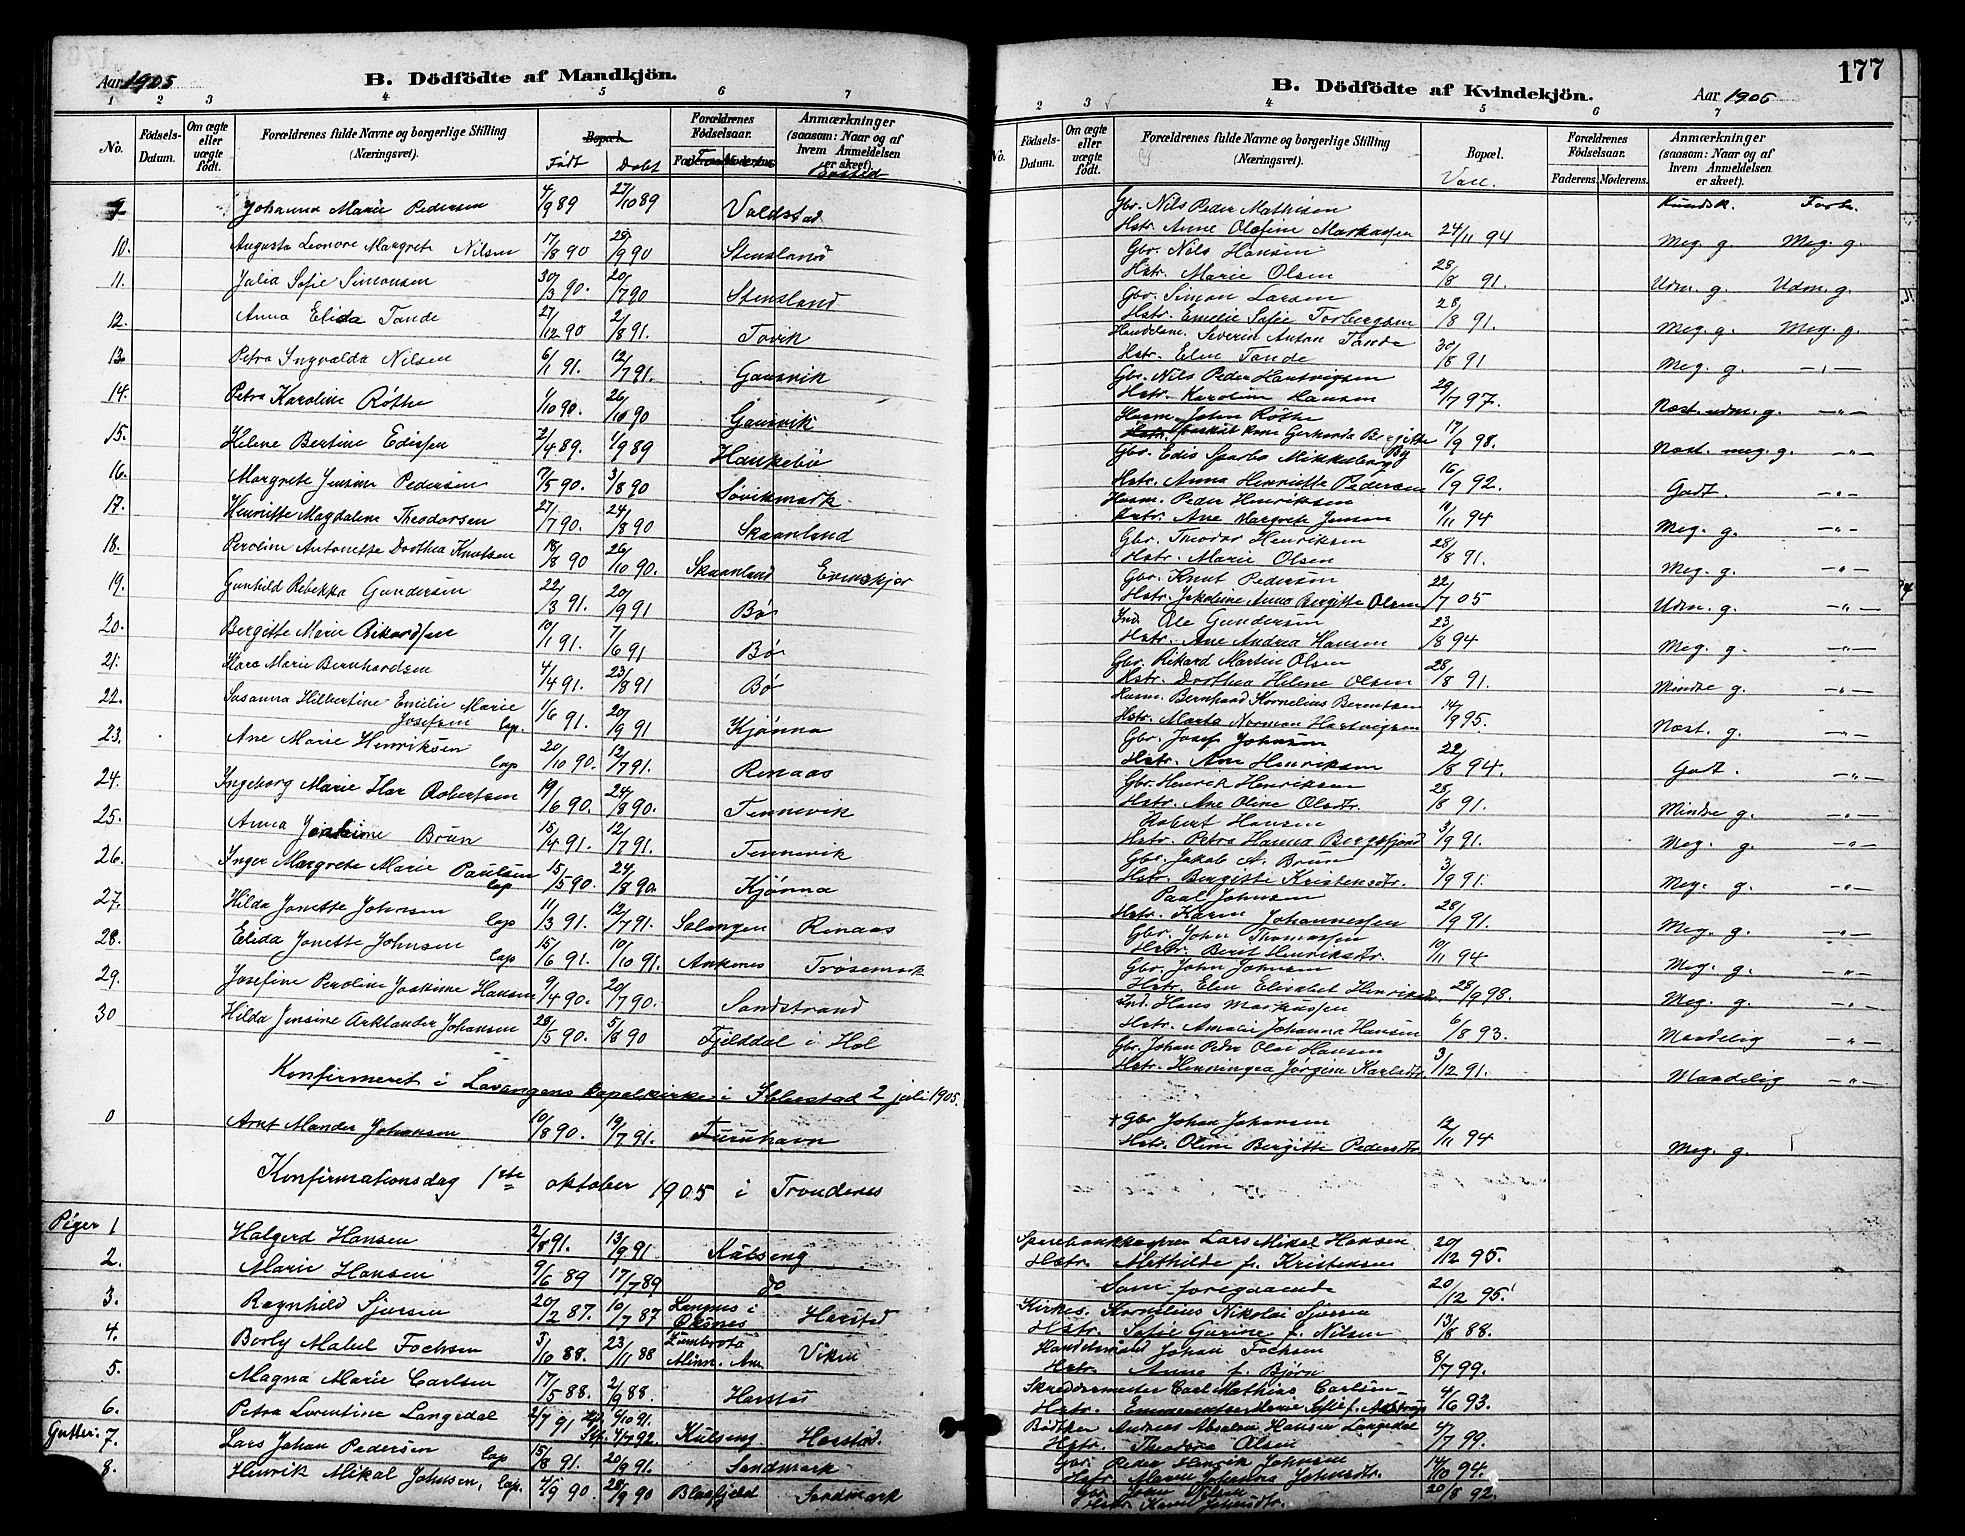 Aar 1905
B. Dödfödte af Mandkjön.
1 2 3 4 5 6 7
No.
Födsels-Datum.
Om ægte eller uægte födt.
Forældrenes fulde Navne og borgerlige Stilling (Næringsvei).
Bopæl.
Født Døbt
Forældrenes Födselsaar.
Faderens Moderens
Anmærkninger (saasom: Naar og af hvem Anmeldelsen er skeet).
Bosted
9 Johanna Marie Pedersen 4/9 89 27/10 89 Voldstad
10. Augusta Leonore Margrete Nilsen 17/8 90 28/9 90 Stensland
11. Julia Sofie Simonsen 30/3 90. 20/7 90 Stensland
12. Anna Elida Tande 27/12 90 2/8 91. Tovik
13. Petra Ingvalda Nilsen 6/1 91. 12/7 91. Gausvik
14. Petra Karoline Røthe 1/10 90. 26/10 90 Gausvik
15. Helene Bertine Edissen 2/4 89. 1/9 89 Haukebø
16. Margrete Jensine Pedersen 7/5 90. 3/8 90 Søvikmark
17. Henriette Magdalene Theodorsen 27/7 90. 24/8 90 Skaanland
18. Peroline Antonette Dorthea Knutsen 18/8 90 26/10 90. Skaanland Evenskjer
19. Gunhild Rebekka Gundersen 22/3 91. 20/9 91 Bø
20. Bergitte Marie Rikardsen 10/1 91. 7/6 91 Bø
21. Hara Marie Bernhardsen 4/4 91. 23/8 91 Bø
22. Susanna Hilbertine Emilie Marie Josefsen Lap. 1/6 91. 20/9 91 Kjønna
23. Ane Marie Henriksen Lap 20/10 90. 12/7 91. Renaas
24. Ingeborg Marie Robertsen 19/6 90. 24/8 90. Tennevik
25. Anna Joakime Brun 15/4 91. 12/7 91. Tennevik
26. Inger Margrete Marie Paulsen Lap 15/5 90. 24/8 90. Kjønna
27. Hilda Jonette Johnsen Lap 11/3 91. 12/7 91. Salangen Renaas
28. Elida Jonette Johnsen Lap 15/6 91. 10/10 91. Ankenes Trøsemark
29. Josefine Peroline Joakime Hansen 9/4 90. 20/7 90. Sandstrand
30 Hilda Jensine Arklander Johansen 28/5 90. 5/8 90 Fjelddal i Hol
Konfirmeret i Lavangens kapelkirke i Soløstad 2 juli 1905.
0 Arnt Mander Johansen 10/8 90. 19/7 91. Furuhavn
Konfirmationsdag 1ste oktober 1905 i Trondenes
Piger 1 Halgerd Hansen 2/8 91. 13/9 91. Kulseng
2. Marie Hansen 9/6 89 17/7 89 do
3. Ragnhild Sjursen 20/2 87. 10/7 87 Langnes i Øksnes Harstad
4. Borly Mabel Fochsen 3/10 88. 23/11 88 Zumbrota Minn. Am. Viken
5. Magna Marie Carlsen 17/5 88. 2/9 88. Harstad
6. Petra Lorentine Langedal 2/7 91 4/10 91. 4/7 92. Kulseng. Harstad.
Gutter: 7. Lars Johan Pedersen Lap 15/8 91. 20/9 91. Sandmark
8. Henrik Mikal Johnsen, Lap. 4/9 90 28/9 90 Blaafjeld Sandmark
177
B. Dödfödte af Kvindekjön.
Aar 1905
2 3 4 5 6 7
No.
Födsels-Datum.
Om ægte eller uægte födt.
Forældrenes fulde Navne og borgerlige Stilling (Næringsvei).
Bopæl.
Vacc.
Forældrenes Födselsaar.
Faderens. Moderens.
Anmærkninger (saasom: Naar og af hvem Anmeldelsen er skeet).
Kundsk. Forh.
Gbr. Nils Peder Mathisen
Hstr. Anne Olefine Markussen 24/11 94 Meg. g. Meg. g.
Gbr. Nils Hansen
Hstr. Marie Olsen 28/8 91. Udm. g. Udm. g.
Gbr. Simon Larsen
Hstr. Emelie Sofie Torbergsen 28/8 91. Meg. g. Meg. g.
Handelsm. Severin Anton Tande
Hstr. Elen Tande 30/8 91 Meg. g. —"—
Gbr. Nils Peder Hartvigsen
Hstr. Karoline Hansen 29/7 97. Næst. udm. g. —"—
Husm. John Røthe
Hstr. fraskilt kone Gerharda Bergitte 17/9 98. Næst. meg. g. —"—
Gbr. Edis Sparbo Mikkelborg
Hstr. Anna Henriette Pedersen 16/9 92. Godt. —"—
Husm. Peder Henriksen
Hstr. Ane Margrete Jensen 10/11 94 Meg. g. —"—
Gbr. Theodor Henriksen
Hstr. Marie Olsen 28/8 91. Meg. g. —"—
Gbr. Knut Pedersen
Hstr. Jakobine Anna Bergitte Olsen 22/7 05 Udm. g. —"—
Ind. Ole Gundersen
Hstr. Ane Andrea Hansen 23/8 94 Meg. g. —"—
Gbr. Rikard Martin Olsen
Hstr. Dorthea Helene Olsen 28/8 91. Mindre g. —"—
Husm. Bernhard Kornelius Berentsen
Hstr. Marta Norman Hartvigsen 14/9 95. Næst. g. —"—
Gbr. Josef Johnsen
Hstr. Ane Henriksen 22/8 94. Godt. —"—
Gbr. Henrik Henriksen
Hstr. Ane Oline Olsdtr. 28/8 91. Mindre g. —"—
Robert Hansen
Hstr. Petra Hanna Bergsfjord 3/9 91. Meg. g. —"—
Gbr. Jakob A. Brun
Hstr. Bergitte Kristensdtr. 3/9 91. Meg. g. —"—
Paal Johnsen
Hstr. Karen Johannessen 28/9 91. Meg. g. —"—
Gbr. John Thomassen
Hstr. Berit Henriksdtr. 10/11 94 Meg. g. —"—
Gbr. John Johnsen
Hstr. Elen Elisabet Henriksdtr. 28/9 98. Meg. g. —"—
Ind. Hans Markussen
Hstr. Amalie Johanna Hansen 6/8 93. Maadelig —"—
Gbr. Johan Peder Olai Hansen
Hstr. Henningea Jørgine Karlsdtr. 3/12 91. Maadelig —"—
+ Gbr Johan Johansen
Hstr. Oline Bergitte Pedersdtr. 12/11 94 Meg. g.
Sparebankkasserer Lars Mikal Hansen
Hstr. Mathilde f. Kristensen 20/12 95.
Som foregaaende 20/12 95.
Kirkes. Kornelius Nikolai Sjursen
Hstr. Sofie Gurine f. Nilsen 13/8 88.
Handelsmand Johan Fochsen
Hstr. Anna f. Bjørn 8/7 99.
Skreddermester Carl Mathias Carlsen
Hstr. Marie Sofie f. Aastrup 4/6 93.
Bødtker Andreas Absalon Hansen Langedal
Hstr. Theodora Olsen 4/7 99.
Gbr. Peder Henrik Johnsen
Hstr. Maren Johanna Johnsdtr. 14/10 94.
Gbr. John Nilsen
Hstr. Karen Johnsdtr. 20/8 92.